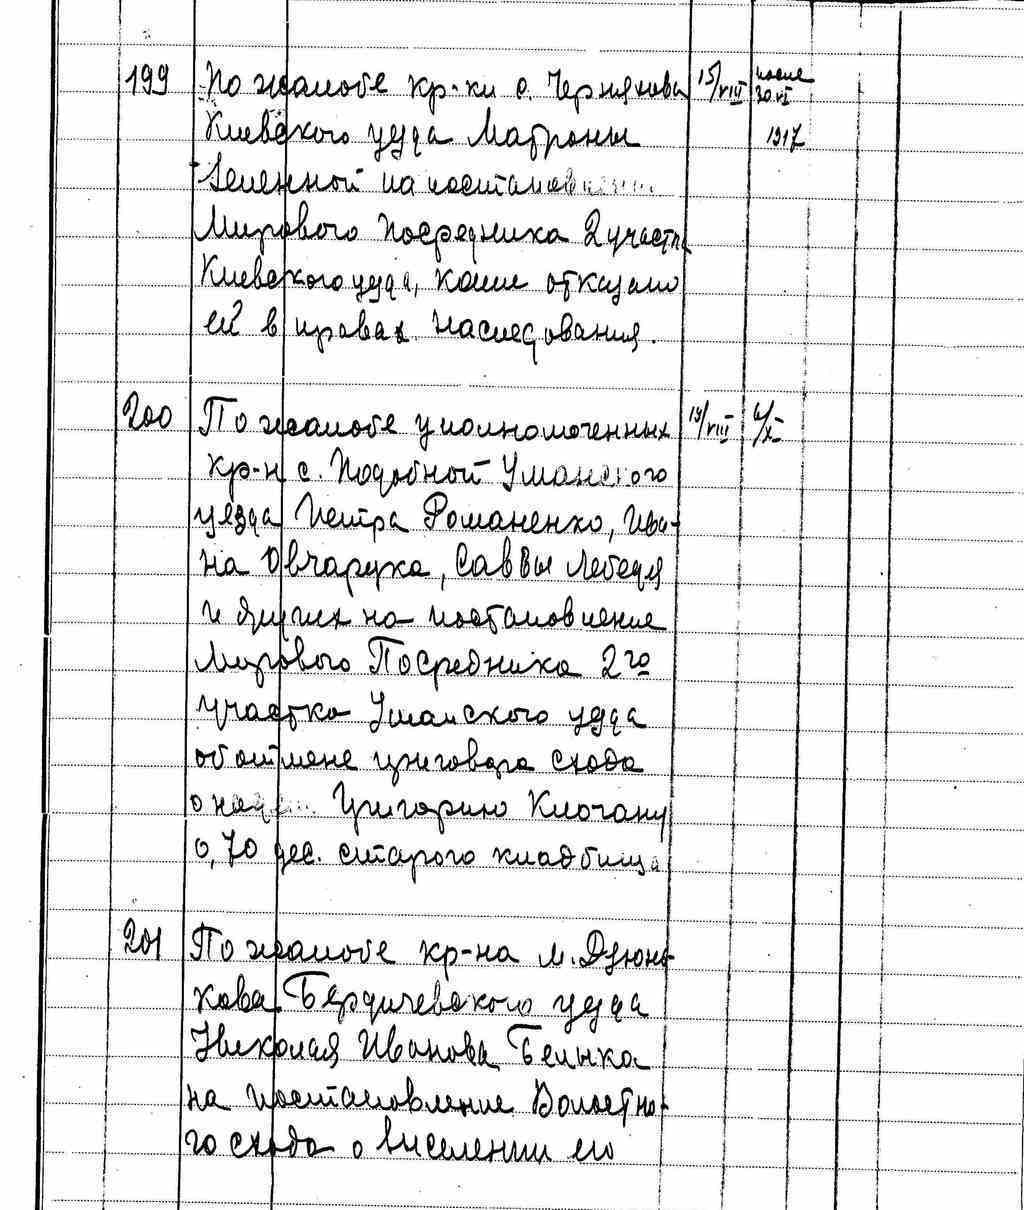 199 По жалобе кр-ки с. Черняхова 15/VIII после 30.VI
Киевского уезда Матроны 1917
Зеленной на постановление
Мирового Посредника 2 участка
Киевского уезда, коим отказано
ей в правах наследования.
200 По жалобе уполномоченных 19/VIII 6/XI
кр-н с. Подобной Уманского
уезда Петра Романенко, Ива-
на Овчарука, Саввы Лебедя
и других на постановление
Мирового Посредника 2го
участка Уманского уезда
об отмене приговора схода
о Григорию Клочану
0,70 дес. старого кладбища
201 По жалобе кр-на м. Дзюнь-
кова Бердичевского уезда
Николая Иванова Белыка
на постановление Волостно-
го схода о выселении его